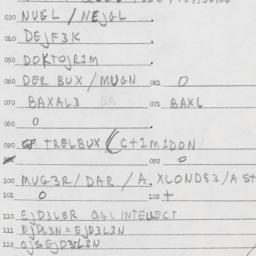 030 NUGL / NEJGL
040 DEJF3K
050 DOKTOJR1M
060 DER BUX / MUGN 061 0
070 BAXAL3 071 BAXL
080 0
090 TRELBUX (C+1M1DON
092 0
100 MUG3R / DAR / A. XLOND83 / A
101 0 102 +
110 EJD3LBR OGL INTELLECT
111 EJDL3N = EJD3L3N
112 OJSEJD3L3N